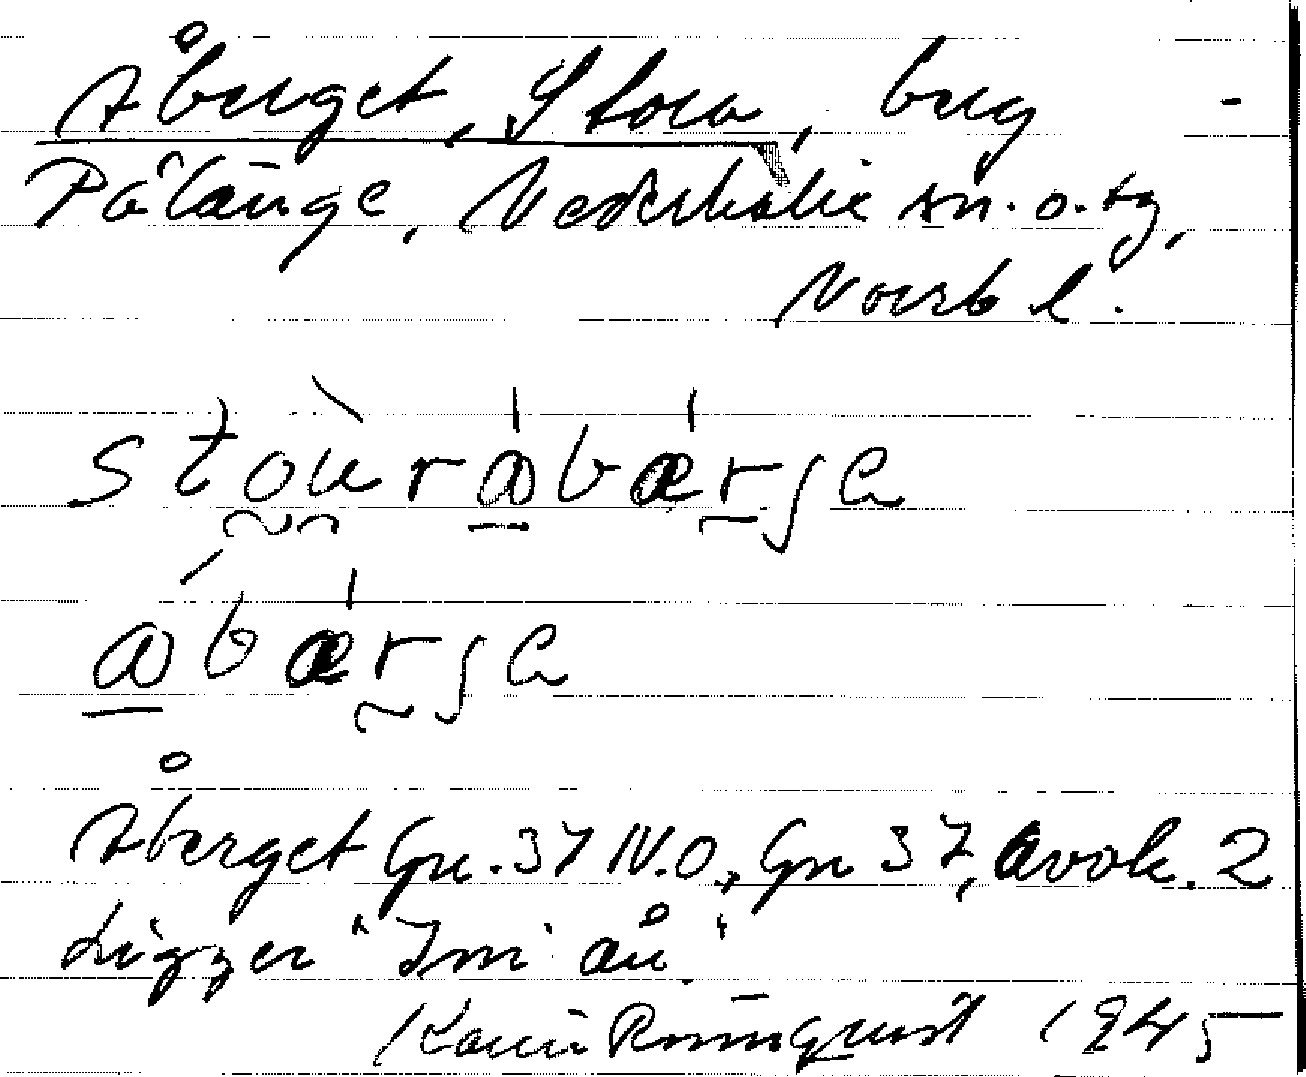 Åberget, Stora, berg -
Pålänge, Nederkalix sn. o. tg,
Norrb l.
stou̯rabærʃe
abærʃe
Åberget Gn. 37 N.O., Gn 37, avvk. 2
Ligger "Ini ån"
Karin Rönnquist 1945